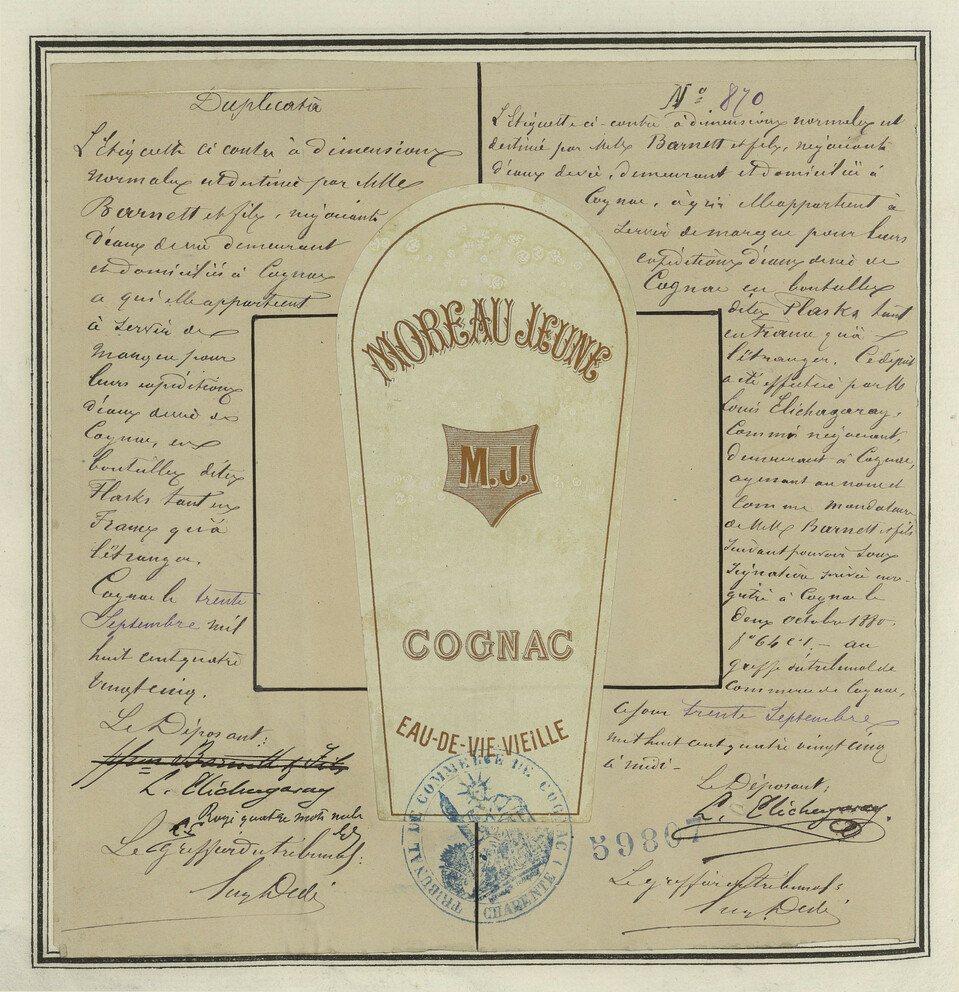 Duplicata
L'étiquette ci contre à dimensions
normales est destinée par MMrs
Barnett et fils, négociants
d'eaux de vie demeurant
et domiciliés à Cognac
a qui elle appartient
à servir de
marque pour
leurs expéditions
d'eaux de vie de
Cognac, en
bouteilles dites
Flasks tant en
France qu'à
l'étranger.
Cognac le trente
Septembre mil
huit cent quatre
vingt cinq.
Le Déposant:
L. Elichagaray
Rayé quatre mots nuls
LE
Le Greffier du tribunal:
N° 870
L'étiquette ci-contre à dimensions normales est
destinée par MMrs Barnett et fils, négociants
d'eaux de vie, demeurant et domiciliés à
Cognac, à qui elle appartient à
servir de marque pour leurs
expéditions d'eaux de vie de
Cognac en bouteilles
dites Flasks tant
en France qu'à
l'étranger. Ce dépôt
a été effectué par M
Louis Elichagaray,
Commis négociant,
demeurant à Cognac,
agissant au nom et
comme mandataire
de MMrs Barnett et fils
suivant pouvoir sous
signature privée enre-
gistré à Cognac le
deux octobre 1880.
f° 64 c 1. - au
greffe du tribunal de
Commerce de Cognac,
ce jour trente Septembre
mil huit cent quatre vingt cinq
à midi -
Le Déposant:
L. Elichagaray.
Le greffier du tribunal:
MOREAU JEUNE
M.J.
COGNAC
EAU-DE-VIE VIEILLE
TRIBUNAL DE COMMERCE DE COGNAC (CHARENTE)
59807